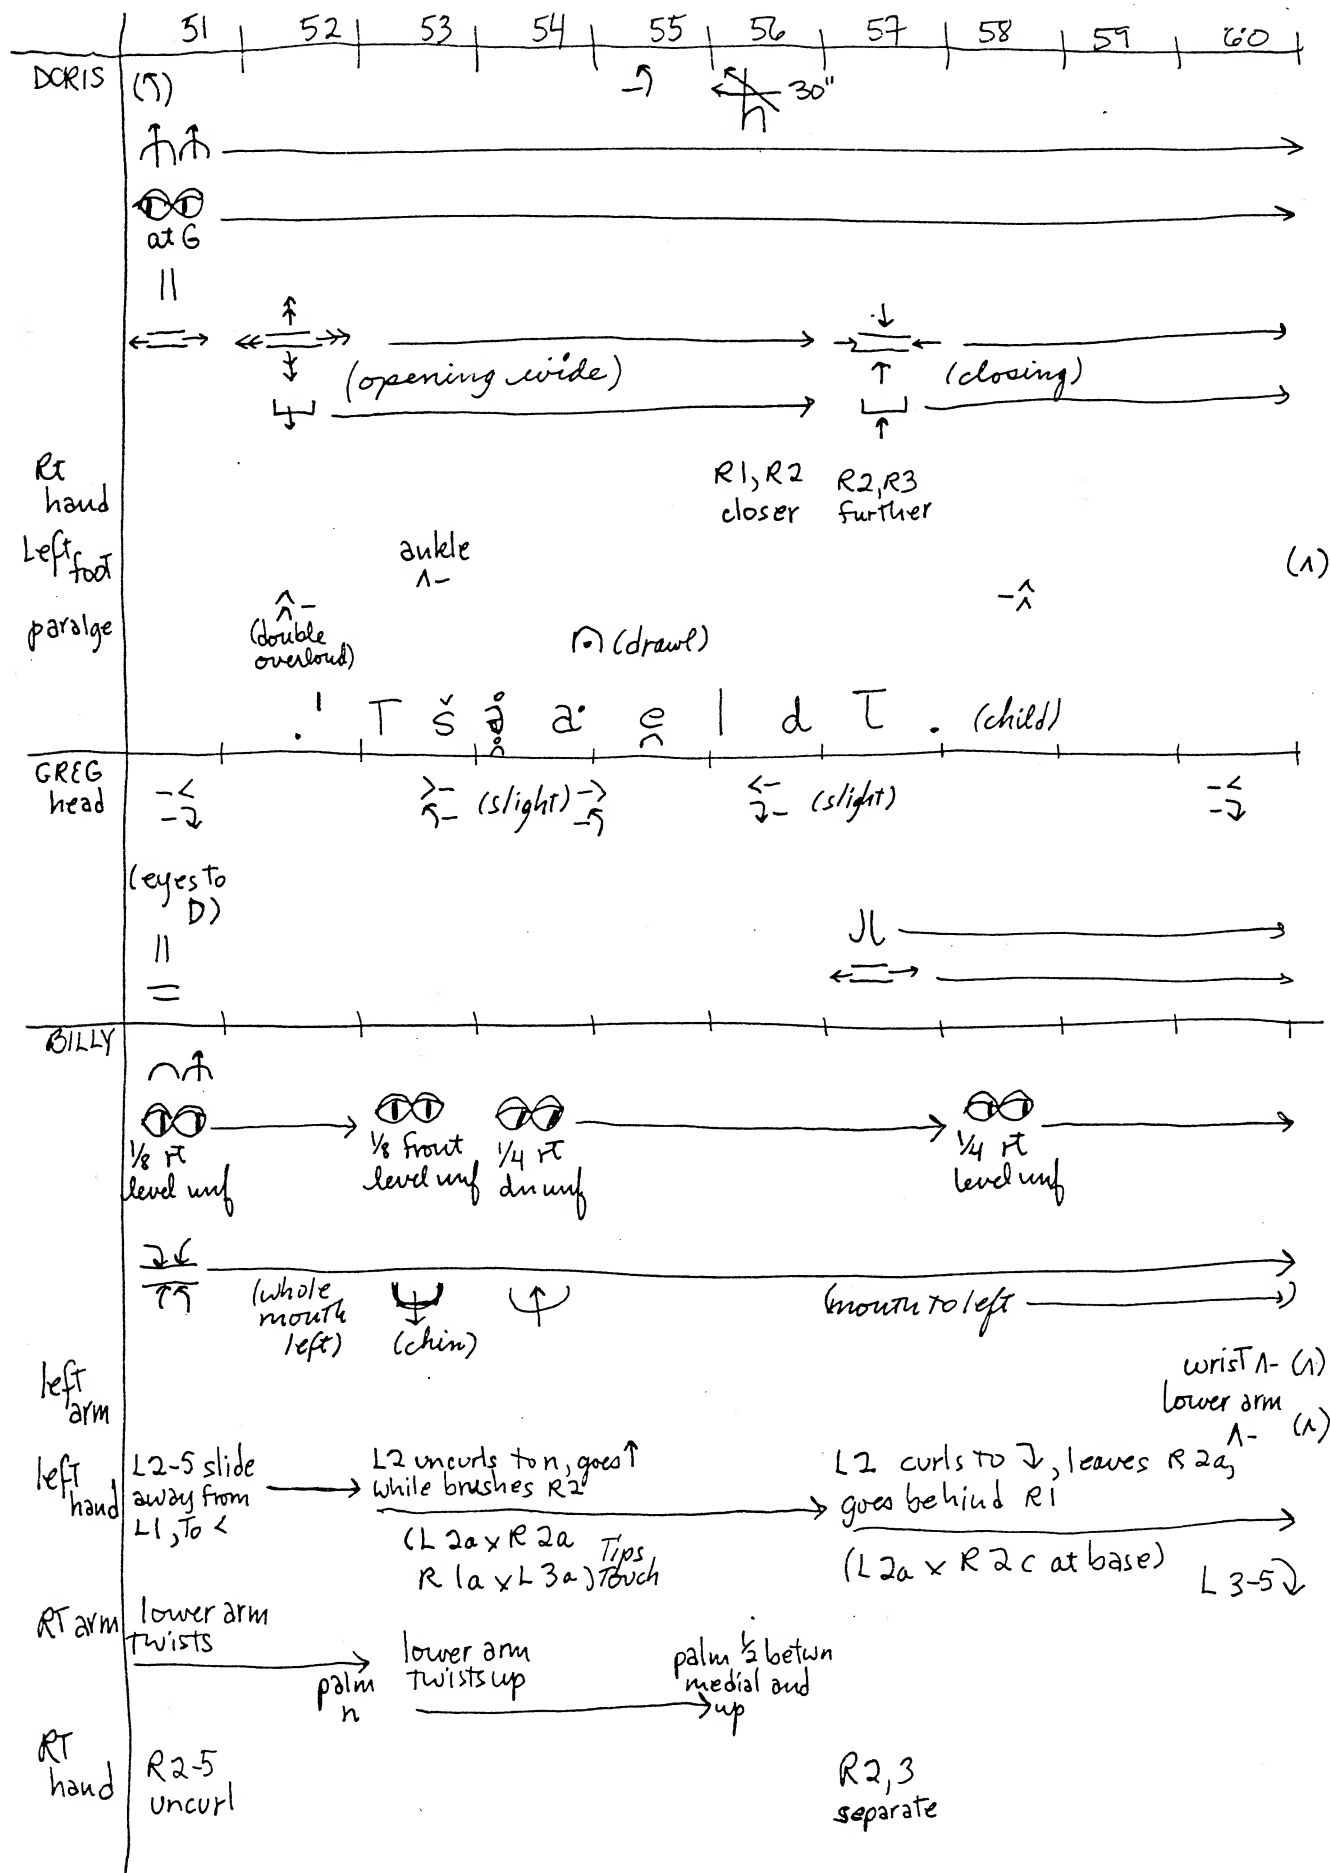 51 52 53 54 55 56 57 58 59 60
DORIS
30"
at G
(opening wide) (closing)
Rt hand
R1, R2 closer
R2, R3 further
Left foot
ankle
paralge
(double overloud)
(drawl)
(child)
GREG
head
(slight)
(slight)
(eyes to D)
BILLY
1/8 rt level unf
1/8 front level unf
1/4 rt dn unf
1/4 rt level unf
(whole mouth left)
(chin)
(mouth to left )
left arm
wrist
lower arm
left hand
L2-5 slide away from L1, to <
L2 uncurls to n, goes ↑ while brushes R2
(L2a x R2a
R1a x L3a) Tips Touch
L2 curls to ↴, leaves R2a, goes behind R1
(L2a x R2c at base)
L3-5
RT arm
lower arm twists
palm n
lower arm twists up
palm 1/2 betwn medial and up
RT hand
R2-5 uncurl
R2,3 separate